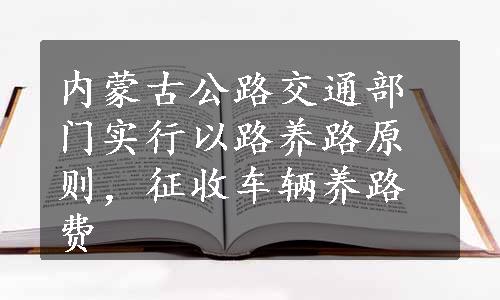 内蒙古公路交通部
门实行以路养路原
则，征收车辆养路
费